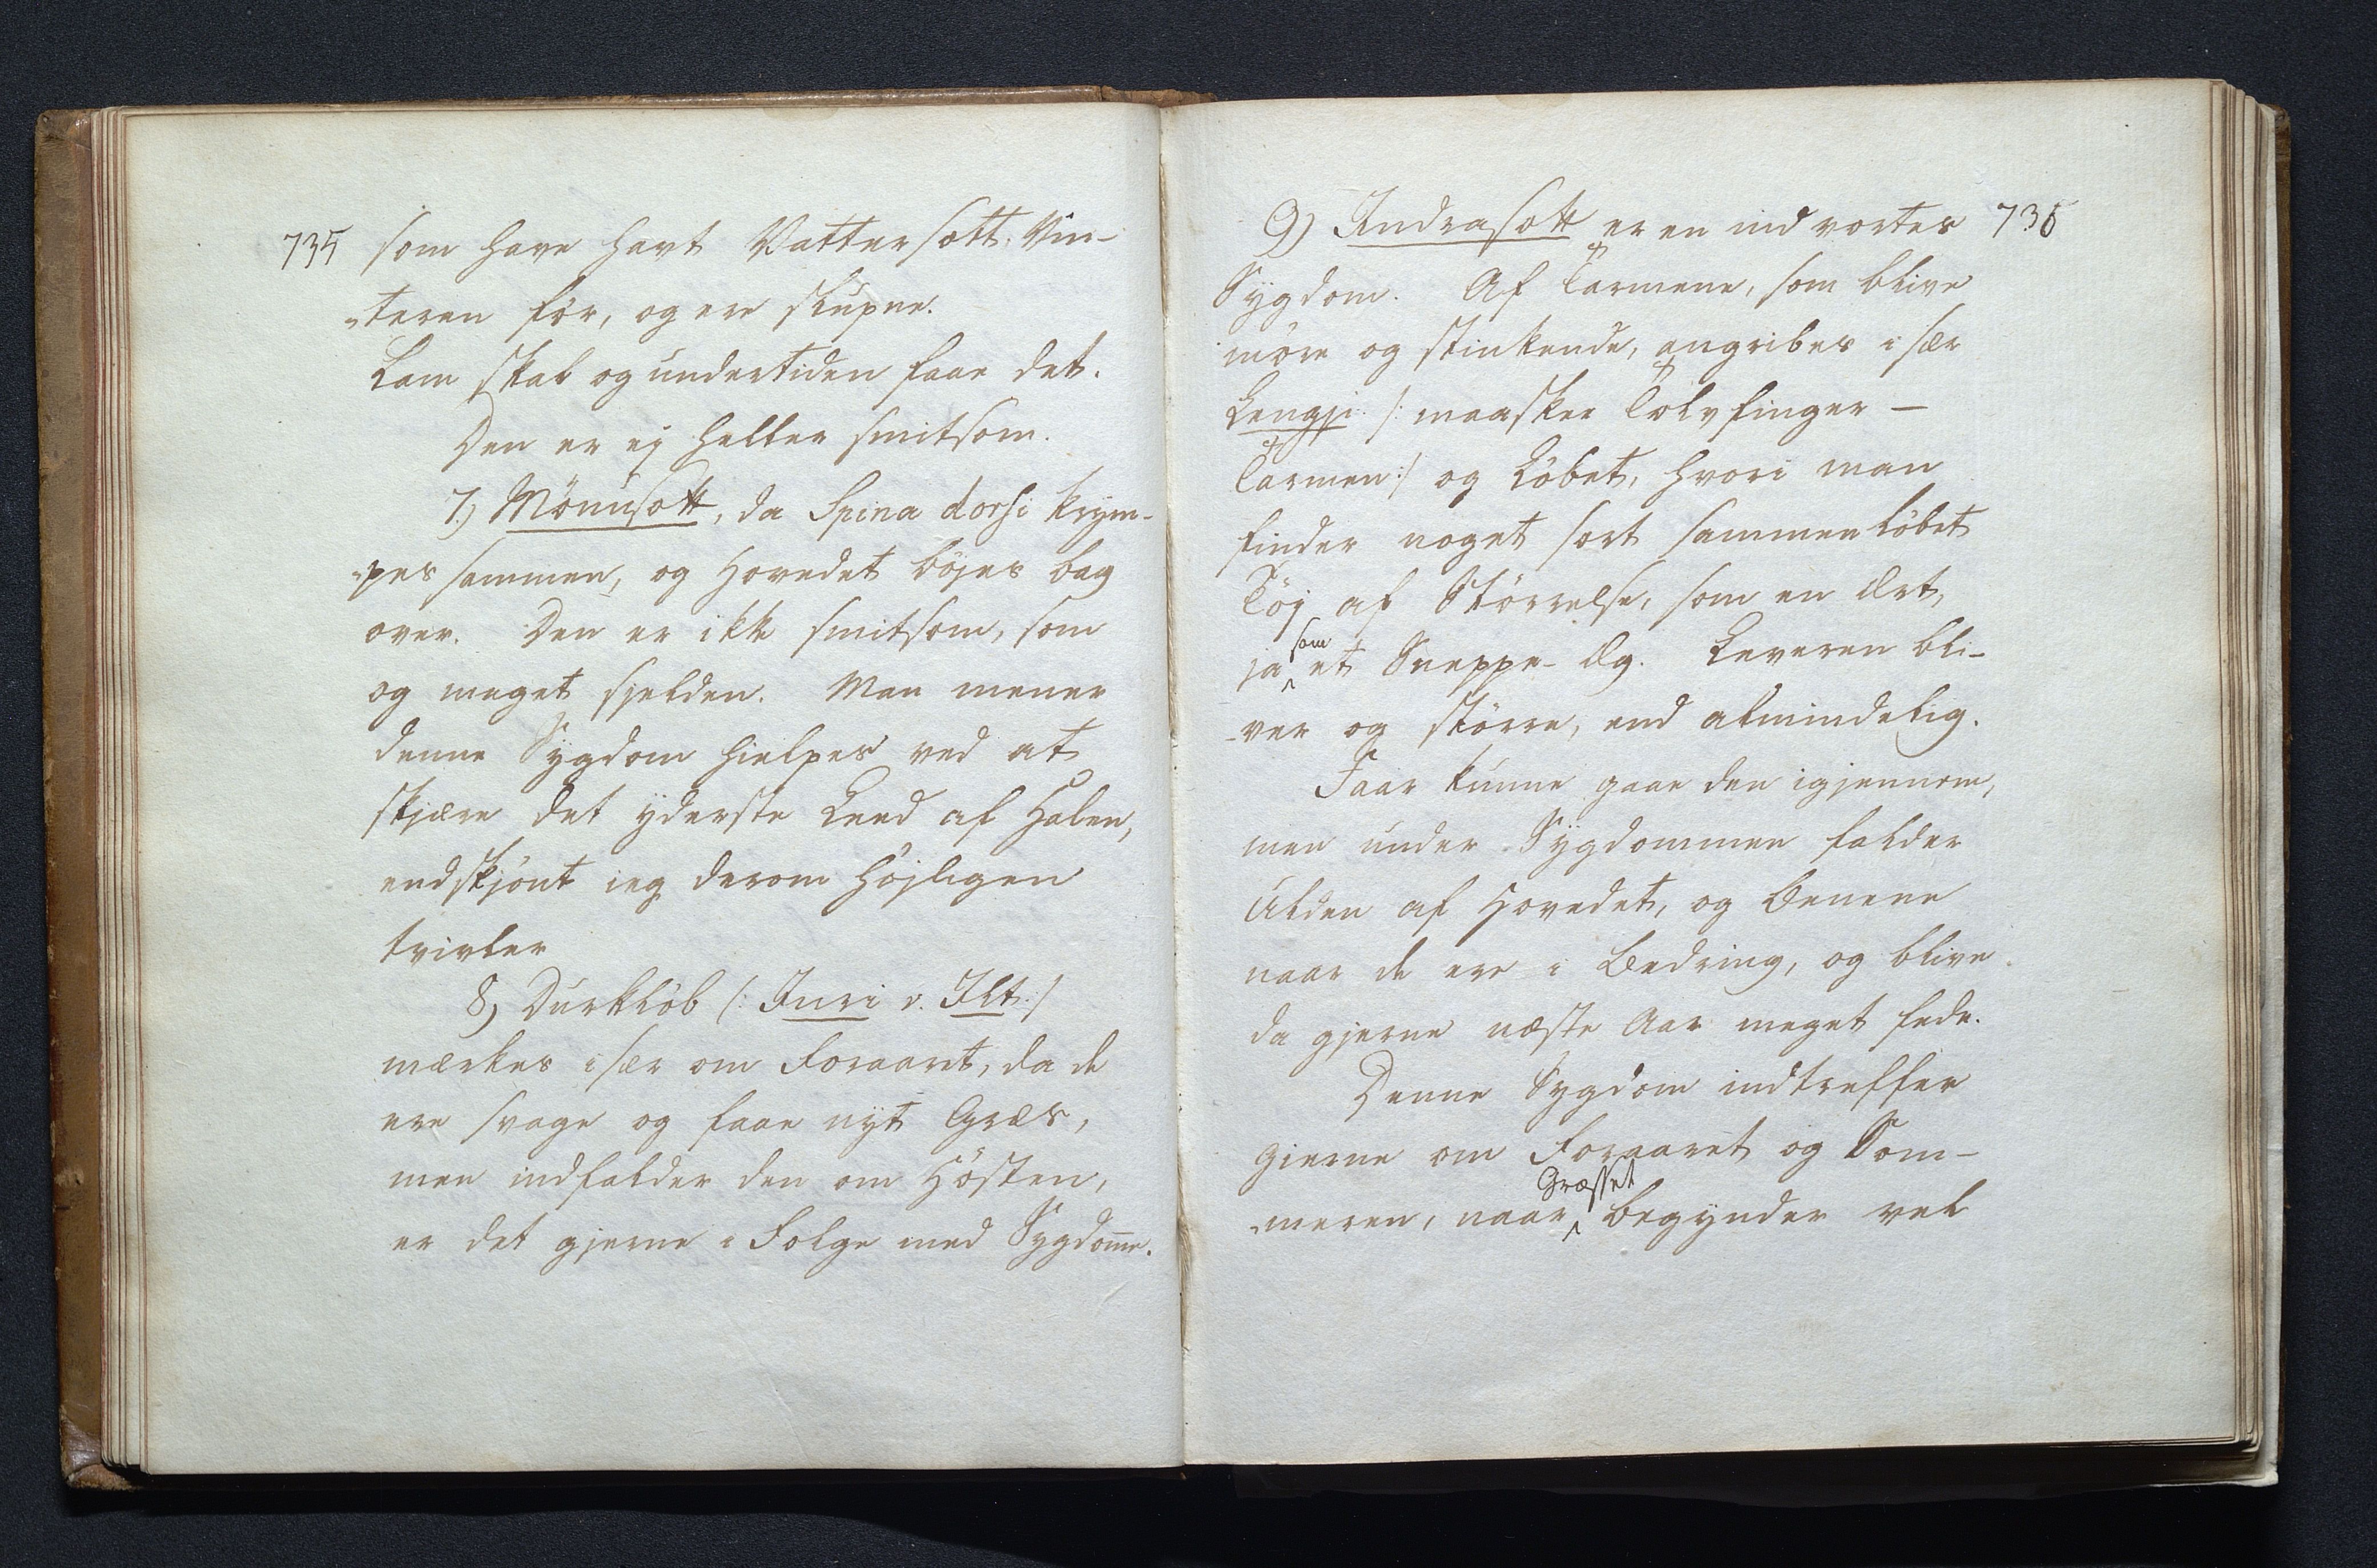 735 som have havt Vattersott Vin-
-teren för, og ere slupne.
Lam skal og undertiden faae det.
Den er ej heller smitsom.
7.) Mönusott, da Spina dorsi krym-
-pes sammen, og Hovedet böjes bag
over. Den er ikke smitsom, som
og meget sjelden. Man mener
denne Sygdom hielpes ved at
skjære det yderste Leed af Halen,
endskjönt ieg derom höjligen
tvivler
8) Durklöb /: Inri v. Ilt :/
mærkes især om Foraaret, da de
ere svage og faae nyt Græs,
men indfalder den om Hösten,
er det gjerne i Folge med Sygdomme.
9) Indrasott er en indvortes 736
Sygdom. Af Tarmene, som blive
möre og stinkende, angribes især
Lengji /: maaskee Tolvfinger-
Tarmen :/ og Löbet, hvori man
finder noget sort sammenlöbet
Töj af Störrelse, som en Ært,
ja som et Sneppe-Æg. Leveren bli-
-ver og större, end almindelig.
Faar kunne gaae den igjennem,
men under Sygdommen falder
Ulden af Hovedet, og Benene
naar de ere i Bedring, og blive
da gjerne næste Aar meget fede.
Denne Sygdom indtreffer
gierne om Foraaret og Som-
-meren, naar Græsset begynder vel